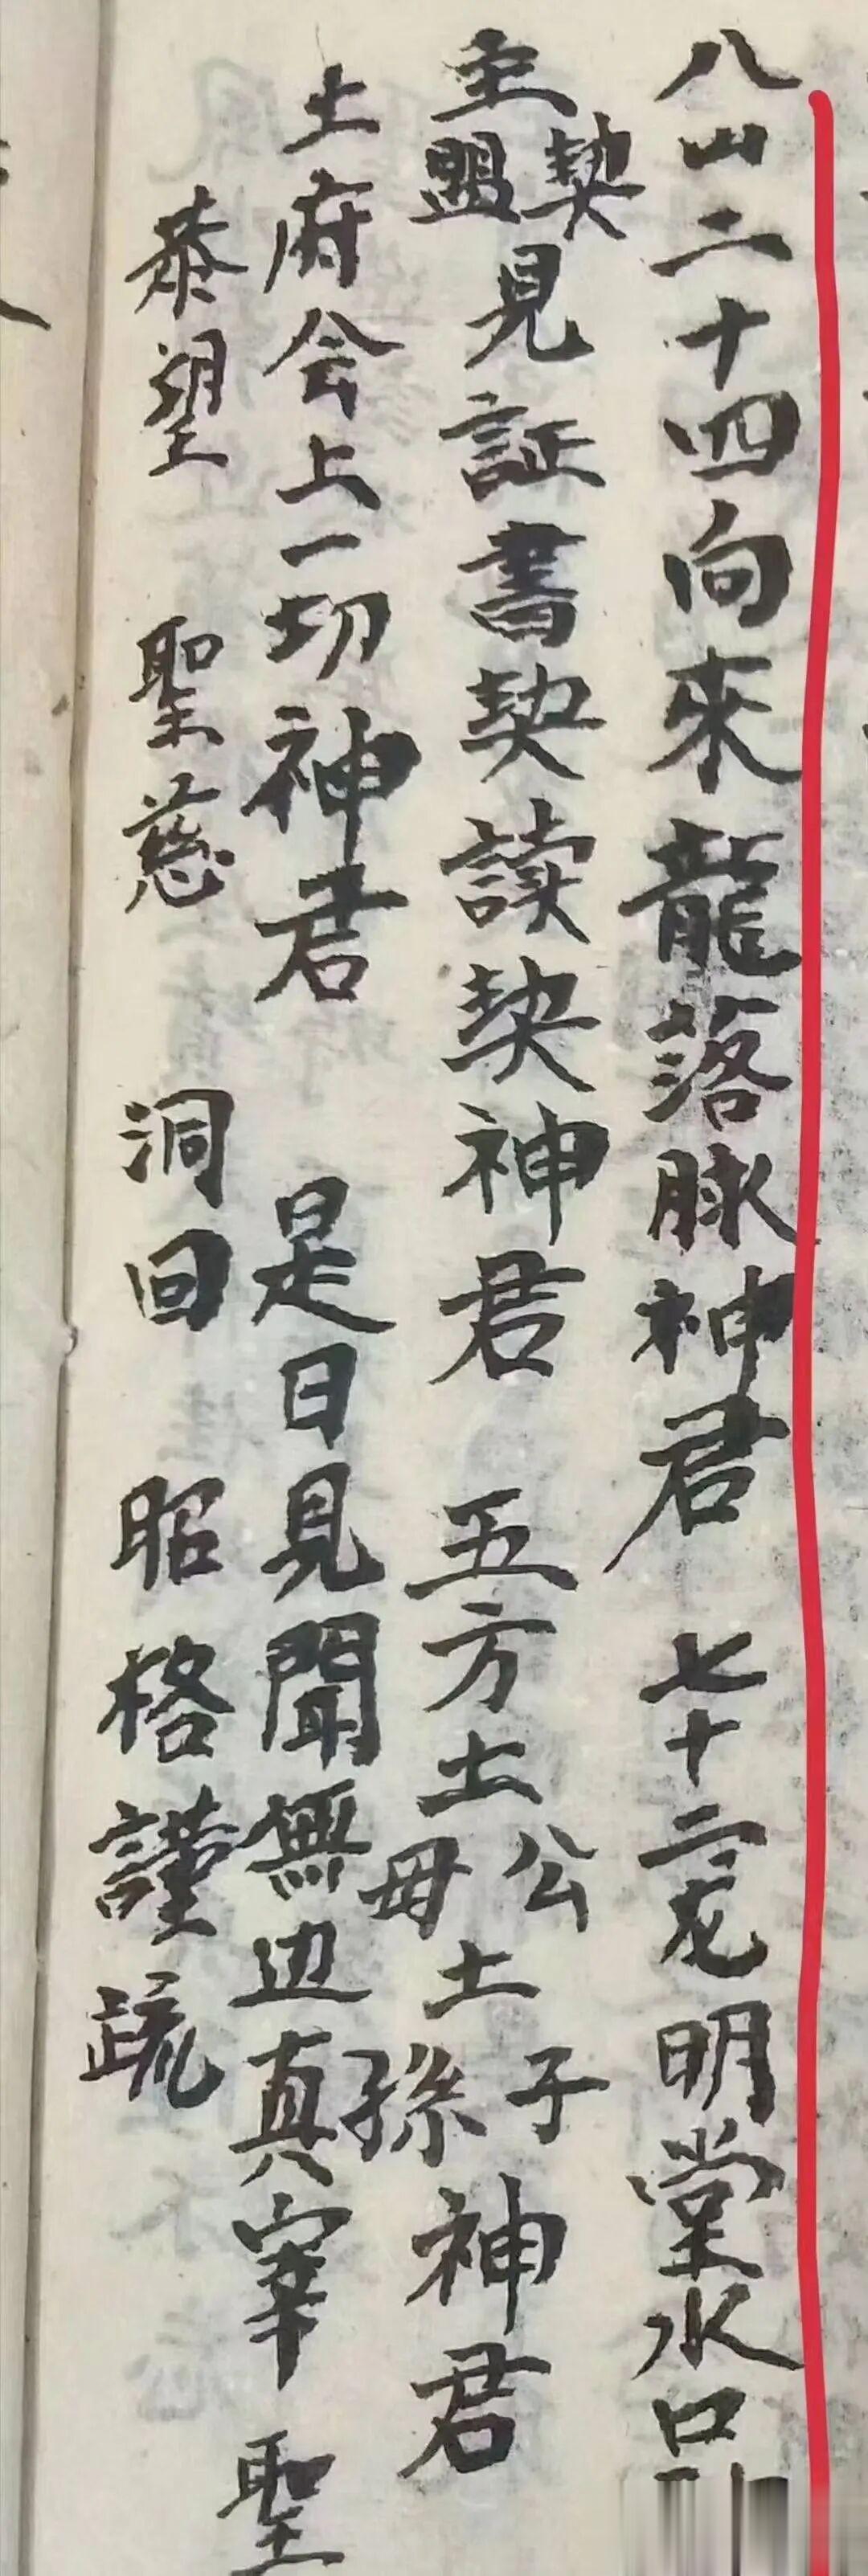 八山二十四向來龍落脉神君 七十二龙明堂水口
主契盟見証書契读契神君 五方土公母土子孫神君
土府会上一切神君 是日見聞無边真宰 聖
恭望 聖慈 洞回 昭格謹疏